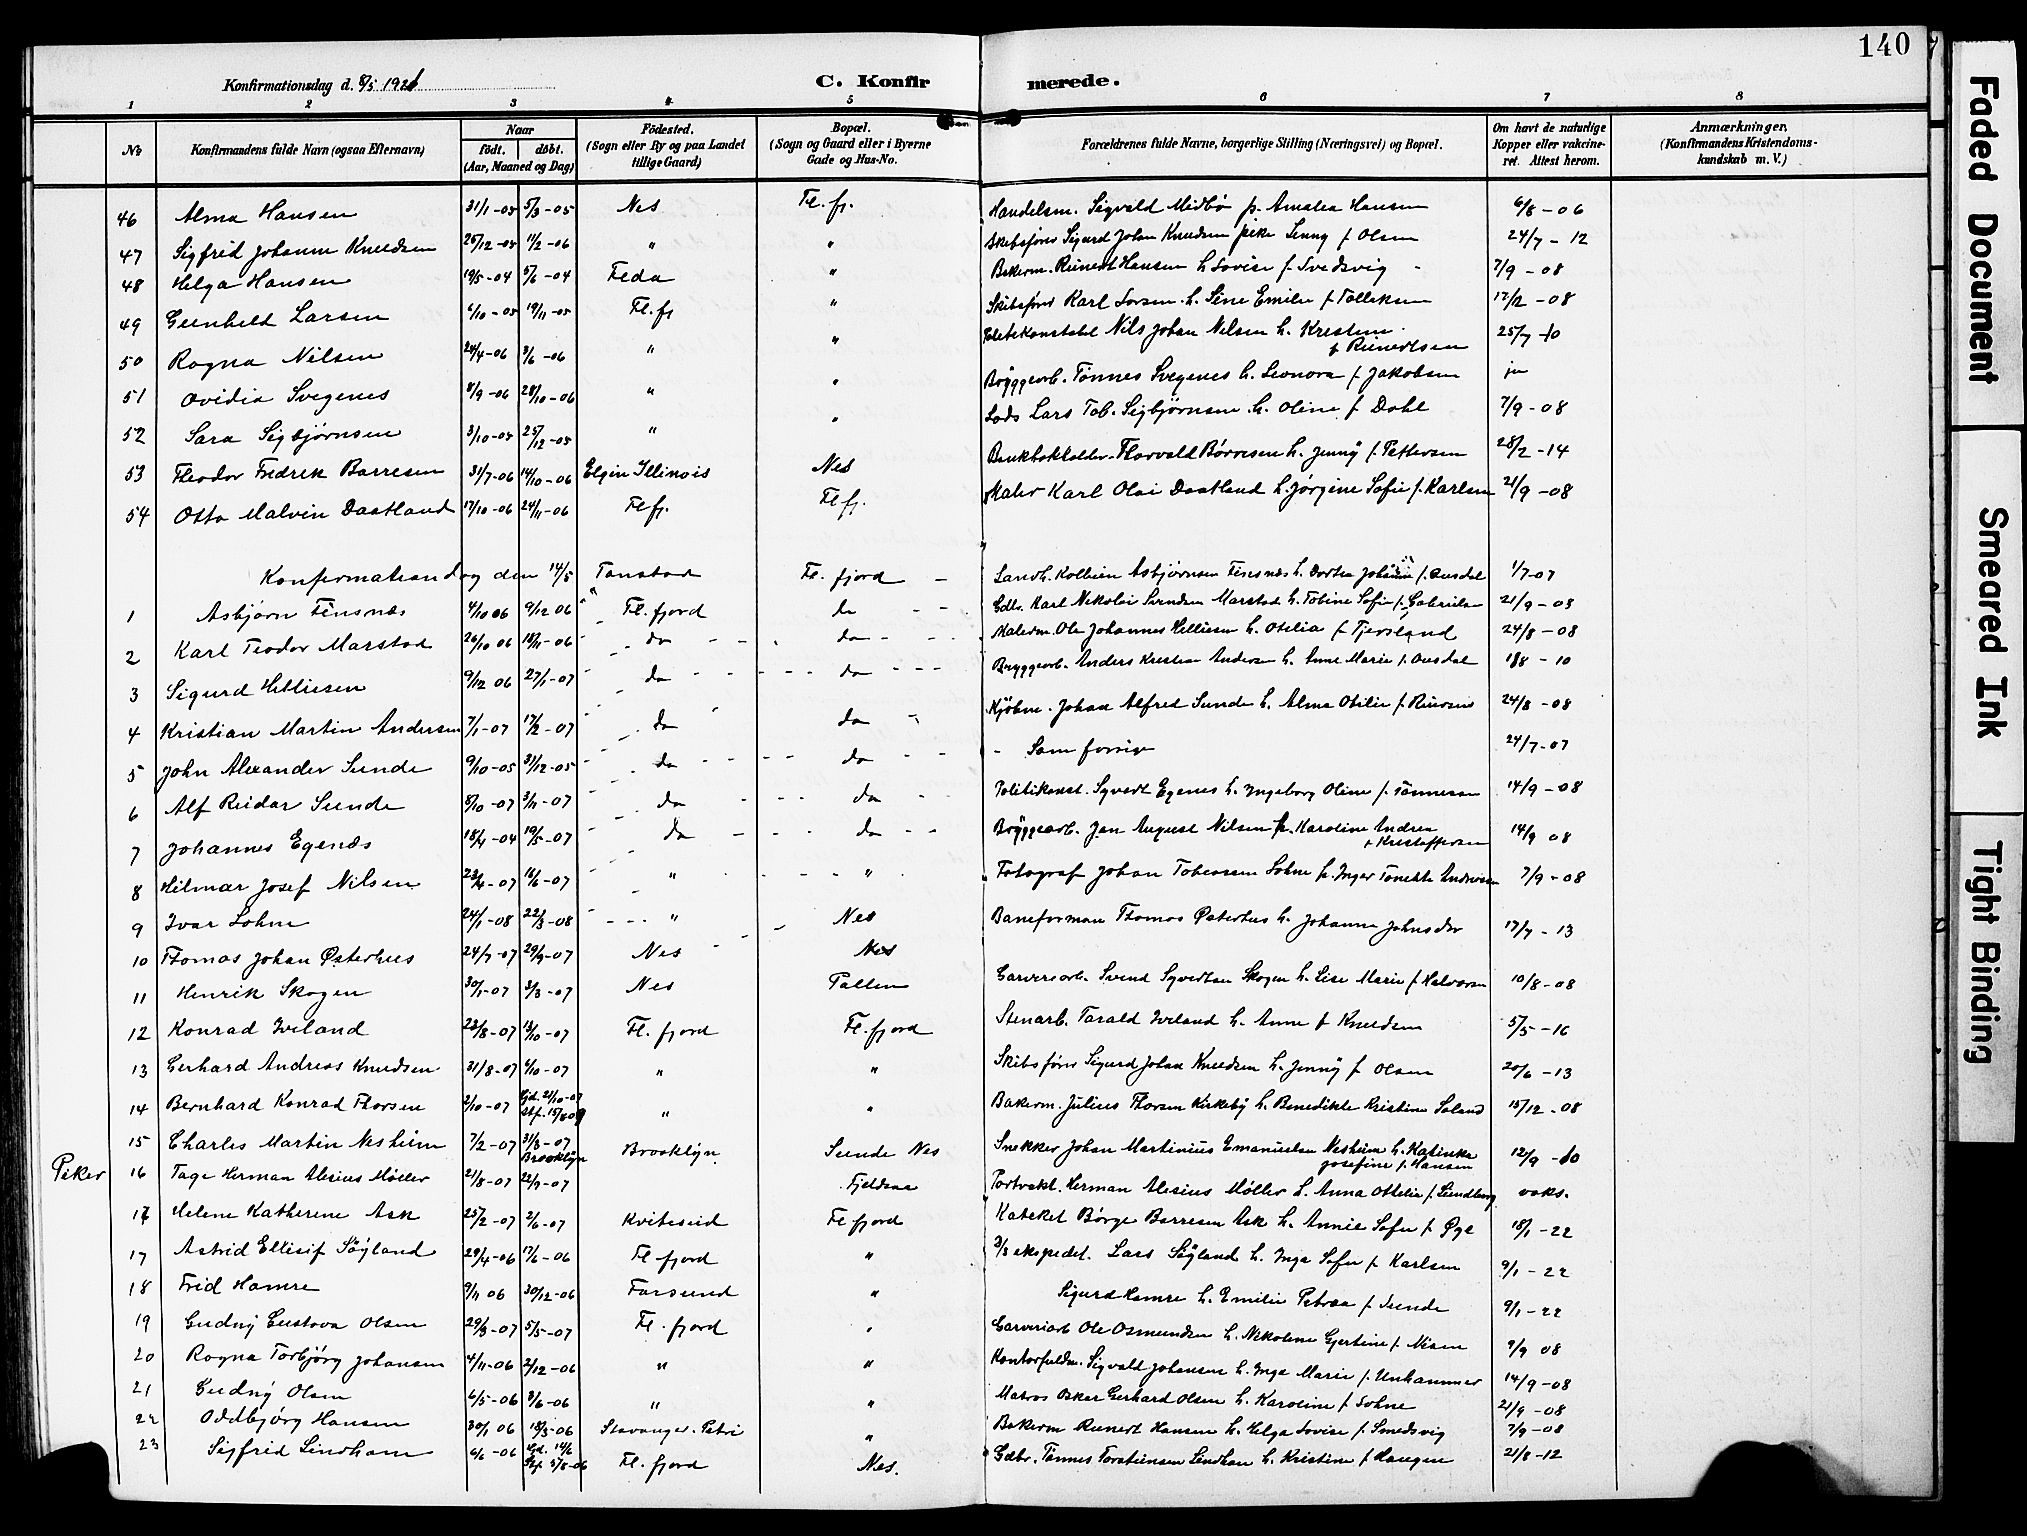 140
Konfirmationsdag d. 8/5 1921
C. Konfirmerede.
1 2 3 4 5 6 7 8
No
Konfirmandens fulde Navn (ogsaa Efternavn)
Naar født. døbt. (Aar, Maaned og Dag)
Födested. (Sogn eller By og paa Landet tillige Gaard)
Bopæl. (Sogn og Gaard eller i Byerne Gade og Hus-No.
Forældrenes fulde Navne, borgerlige Stilling (Næringsvei) og Bopæl.
Om havt de naturlige Kopper eller vakcineret. Attest herom.
Anmærkninger. (Konfirmandens Kristendomskundskab m. V.)
46 Alma Hansen 31/1-05 5/3-05 Nes Fl. fj. Handelsm. Sigvald Midbø p. Amalea Hansen 6/8-06
47 Sigfrid Johanne Knudsen 25/12-05 11/2-06 " " Skibsfører Sigurd Johan Knudsen Jenny f. Olsen 24/7-12
48 Helga Hansen 19/5-04 5/6-04 Feda " Bakerm. Reinert Hansen h. Lovise f. Svedsvig 7/9-08
49 Gunhild Larsen 6/10-05 19/11-05 Fl. fj " Skibsfører Karl Larsen h. Sine Emilie f. Tolleksen 12/2-08
50 Ragna Nilsen 24/4-06 3/6-06 " " Politikonstabel Nils Johan Nilsen h. Kristine f. Reinertsen 25/7-10
51 Ovidia Svegenes 8/9-06 28/10-06 " " Bryggearb. Tønnes Svegenes h. Leonora f. Jakobsen ja
52 Sara Sigbjørnsen 3/10-05 25/12-05 " " Lods Lars Tob. Sigbjørnsen h. Oline f. Dahl 7/9-08
53 Theodor Fredrik Børresen 31/7-06 14/10-06 Elgin Illinois Nes Bankbokholder Thorvald Børresen h. Jenny f. Pettersen 28/2-14
54 Otto Malvin Daatland 17/10-06 24/11-06 Fl fj. Fl fj. Maler Karl Olai Daatland h. Jørgine Sofie f. Karlsen 21/9-08
Konfirmationsdag den 14/5 Tonstad Fl. fjord Landh. Kolbein Asbjørnsen Finsnæs h. Dortea Johanne f. Ousdal 1/7-07
1 Asbjørn Finsnæs 4/10 06 9/12 06 " Fl. fjord da Gdbr. Karl Nikolai Svendsen Marstad h. Tobine Sofie f. Gabrielsen 21/9-08
2 Karl Teodor Marstad 26/10 06 18/11-06 da da Malerm. Ole Johannes Helliesen h. Otelia f. Tjersland 24/8-08
3 Sigurd Helliesen 9/12 06 27/1-07 da da Bryggearb. Anders Kristian Andersen h. Anne Marie f. Ousdal 18/8-10
4 Kristian Martin Andersen 7/1-07 17/2-07 da da Kjøbm. Johan Alfred Sunde h. Alma Otilie f. 24/8-08
5 John Alexander Sunde 9/10-05 31/12-05 da da Som forrige 24/7-07
6 Alf Reidar Sunde 8/10-07 3/11-07 da da Politikonst. Syvert Egenes h. Ingeborg Oline f. Tønnesen 14/9-08
7 Johannes Egenæs 18/4-04 19/5-07 da da Bryggearb. Jan August Nilsen h. Karoline Andrea f Kristoffersen 14/9 08
8 Hilmar Josef Nilsen 23/4-07 16/6-07 " " Fotograf Johan Tobiassen Lohne h. Inger Tonette Andersen 7/9-08
9 Ivar Lohne 24/1-08 22/3-08 " Nes Baneforman Thomas Østerhus h. Johanne Johnsdtr 17/7-13
10 Thomas Johan Østerhus 24/7-07 29/9-07 Nes Nes
11 Henrik Skogen 30/1-07 3/3-07 Nes Pallen Garveriarb. Svend Syvertsen Skogen h. Lise Marie f Halvorsen 10/8-08
12 Konrad Iveland 22/8-07 13/10-07 Fl. fjord Fl. fjord Stenarb. Tarald Iveland h. Anne f Knudsen 5/5-16
13 Gerhard Andreas Knudsen 31/8-07 6/10-07 " " Skibsfører Sigurd Johan Knudsen h. Jenny f Olsen 20/6-13
14 Bernhard Konrad Thorsen 2/10-07 Hjd. 21/10-07 Stf. 15/8-09 " " Bakerm. Julius Thorsen Kirkeby h. Benedikte Kristine Soland 15/12-08
15 Charles Martin Nesheim 7/2-07 31/3-07 Brooklyn Brooklyn Sunde Nes Snekker Johan Martinius Emanuelsen Nesheim h. Katinka Josefine f. Hansen 12/9-10
Piker 16 Tage Herman Alexius Møller 21/8-07 22/9-07 Fjeldsaa Portvakt. Herman Alexius Møller h. Anna Ottelie f. Lundberg vaks.
17 Helene Katherine Ask 25/2-07 2/6-07 Kviteseid Fl fjord Kateket Børge Børresen Ask h. Annie Sofie f. Øye 18/1-22
17 Astrid Ellisif Søyland 29/4-06 17/6-06 Fl. fjord " ekspedit. Lars Søyland h. Inga Sofie f. Karlsen 9/1-22
18 Frid Hamre 9/11 06 30/12-06 Farsund " Sigurd Hamre h. Emilie Petrea f. Sunde 9/1-22
19 Gudny Gustava Olsen 29/3-07 5/5-07 Fl. fjord " Garveriarb Ole Osmundsen h. Nikoline Gjertine f. Nisen 9/9 08
20 Ragna Torbjørg Johansen 4/11-06 2/12-06 " " Kontorfuldm. Sigvald Johansen h. Inga Marie f. Unhammer 14/9-08
21 Gudny Olsen 6/5-06 3/6-06 " " Matros Oskar Gerhard Olsen h. Karoline f. Lohne 21/9-08
22 Oddbjørg Hansen 30/1 06 18/3-06 Stavanger. Petri " Bakerm Reinert Hansen h. Helga Lovise f. Smedsvig 7/9-08
23 Sigfrid Lindhom 6/6-06 Hjd. 14/6 Stf. 5/8-06 Fl. fjord Nes. Gdbr. Tønnes Torsteinsen Lindhom h. Kristine f Haugen 21/8-12
Faded Document
Smeared Ink
Tight Binding